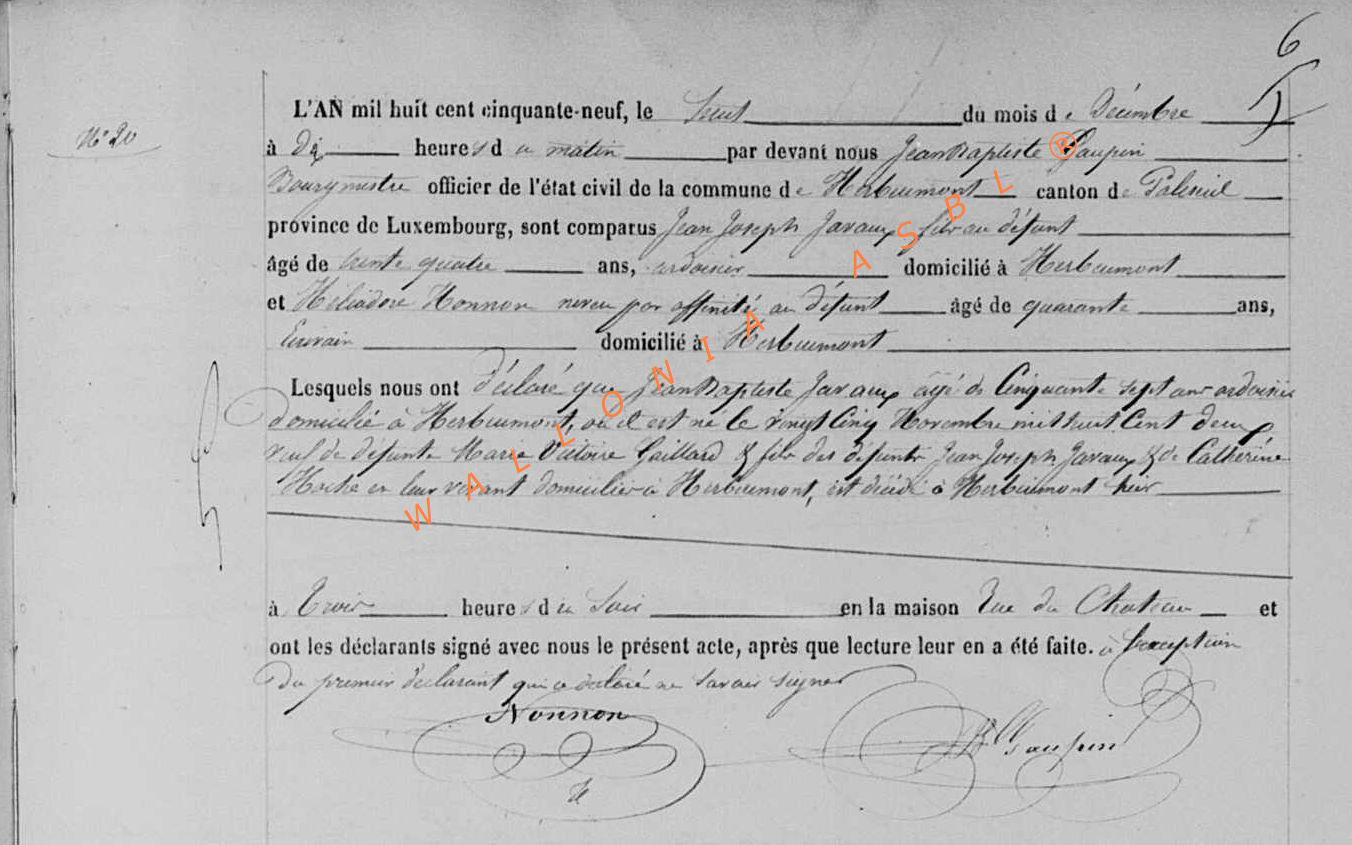 6
N° 20
L'AN mil huit cent cinquante-neuf, le huit du mois de Décembre
à Dix heures du matin par devant nous Jean Baptiste Gaupin
Bourgmestre officier de l'état civil de la commune de Herbeumont canton de Paliseul
province de Luxembourg, sont comparus Jean Joseph Javaux fils au défunt
âgé de trente quatre ans, ardoisier domicilié à Herbeumont
et Héliodore Nonnon neveu par affinité au défunt âgé de quarante ans,
Ecrivain domicilié à Herbeumont
Lesquels nous ont déclaré que Jean Baptiste Javaux agé de Cinquante sept ans ardoisier
domicilié à Herbeumont, où il est né le vingt Cinq Novembre mil huit Cent deux
veuf de défunte Marie Victoire Gaillard & fils des défunts Jean Joseph Javaux & de Cathérine
en leur vivant domiciliés à Herbeumont, est décédé à Herbeumont hier
à Trois heures du Soir en la maison Rue du Chateau et
ont les déclarants signé avec nous le présent acte, après que lecture leur en a été faite. à l'exception
du premier déclarant qui a déclaré ne savoir signer
Nonnon
JB Gaupin
WALLONIA ASBL ®